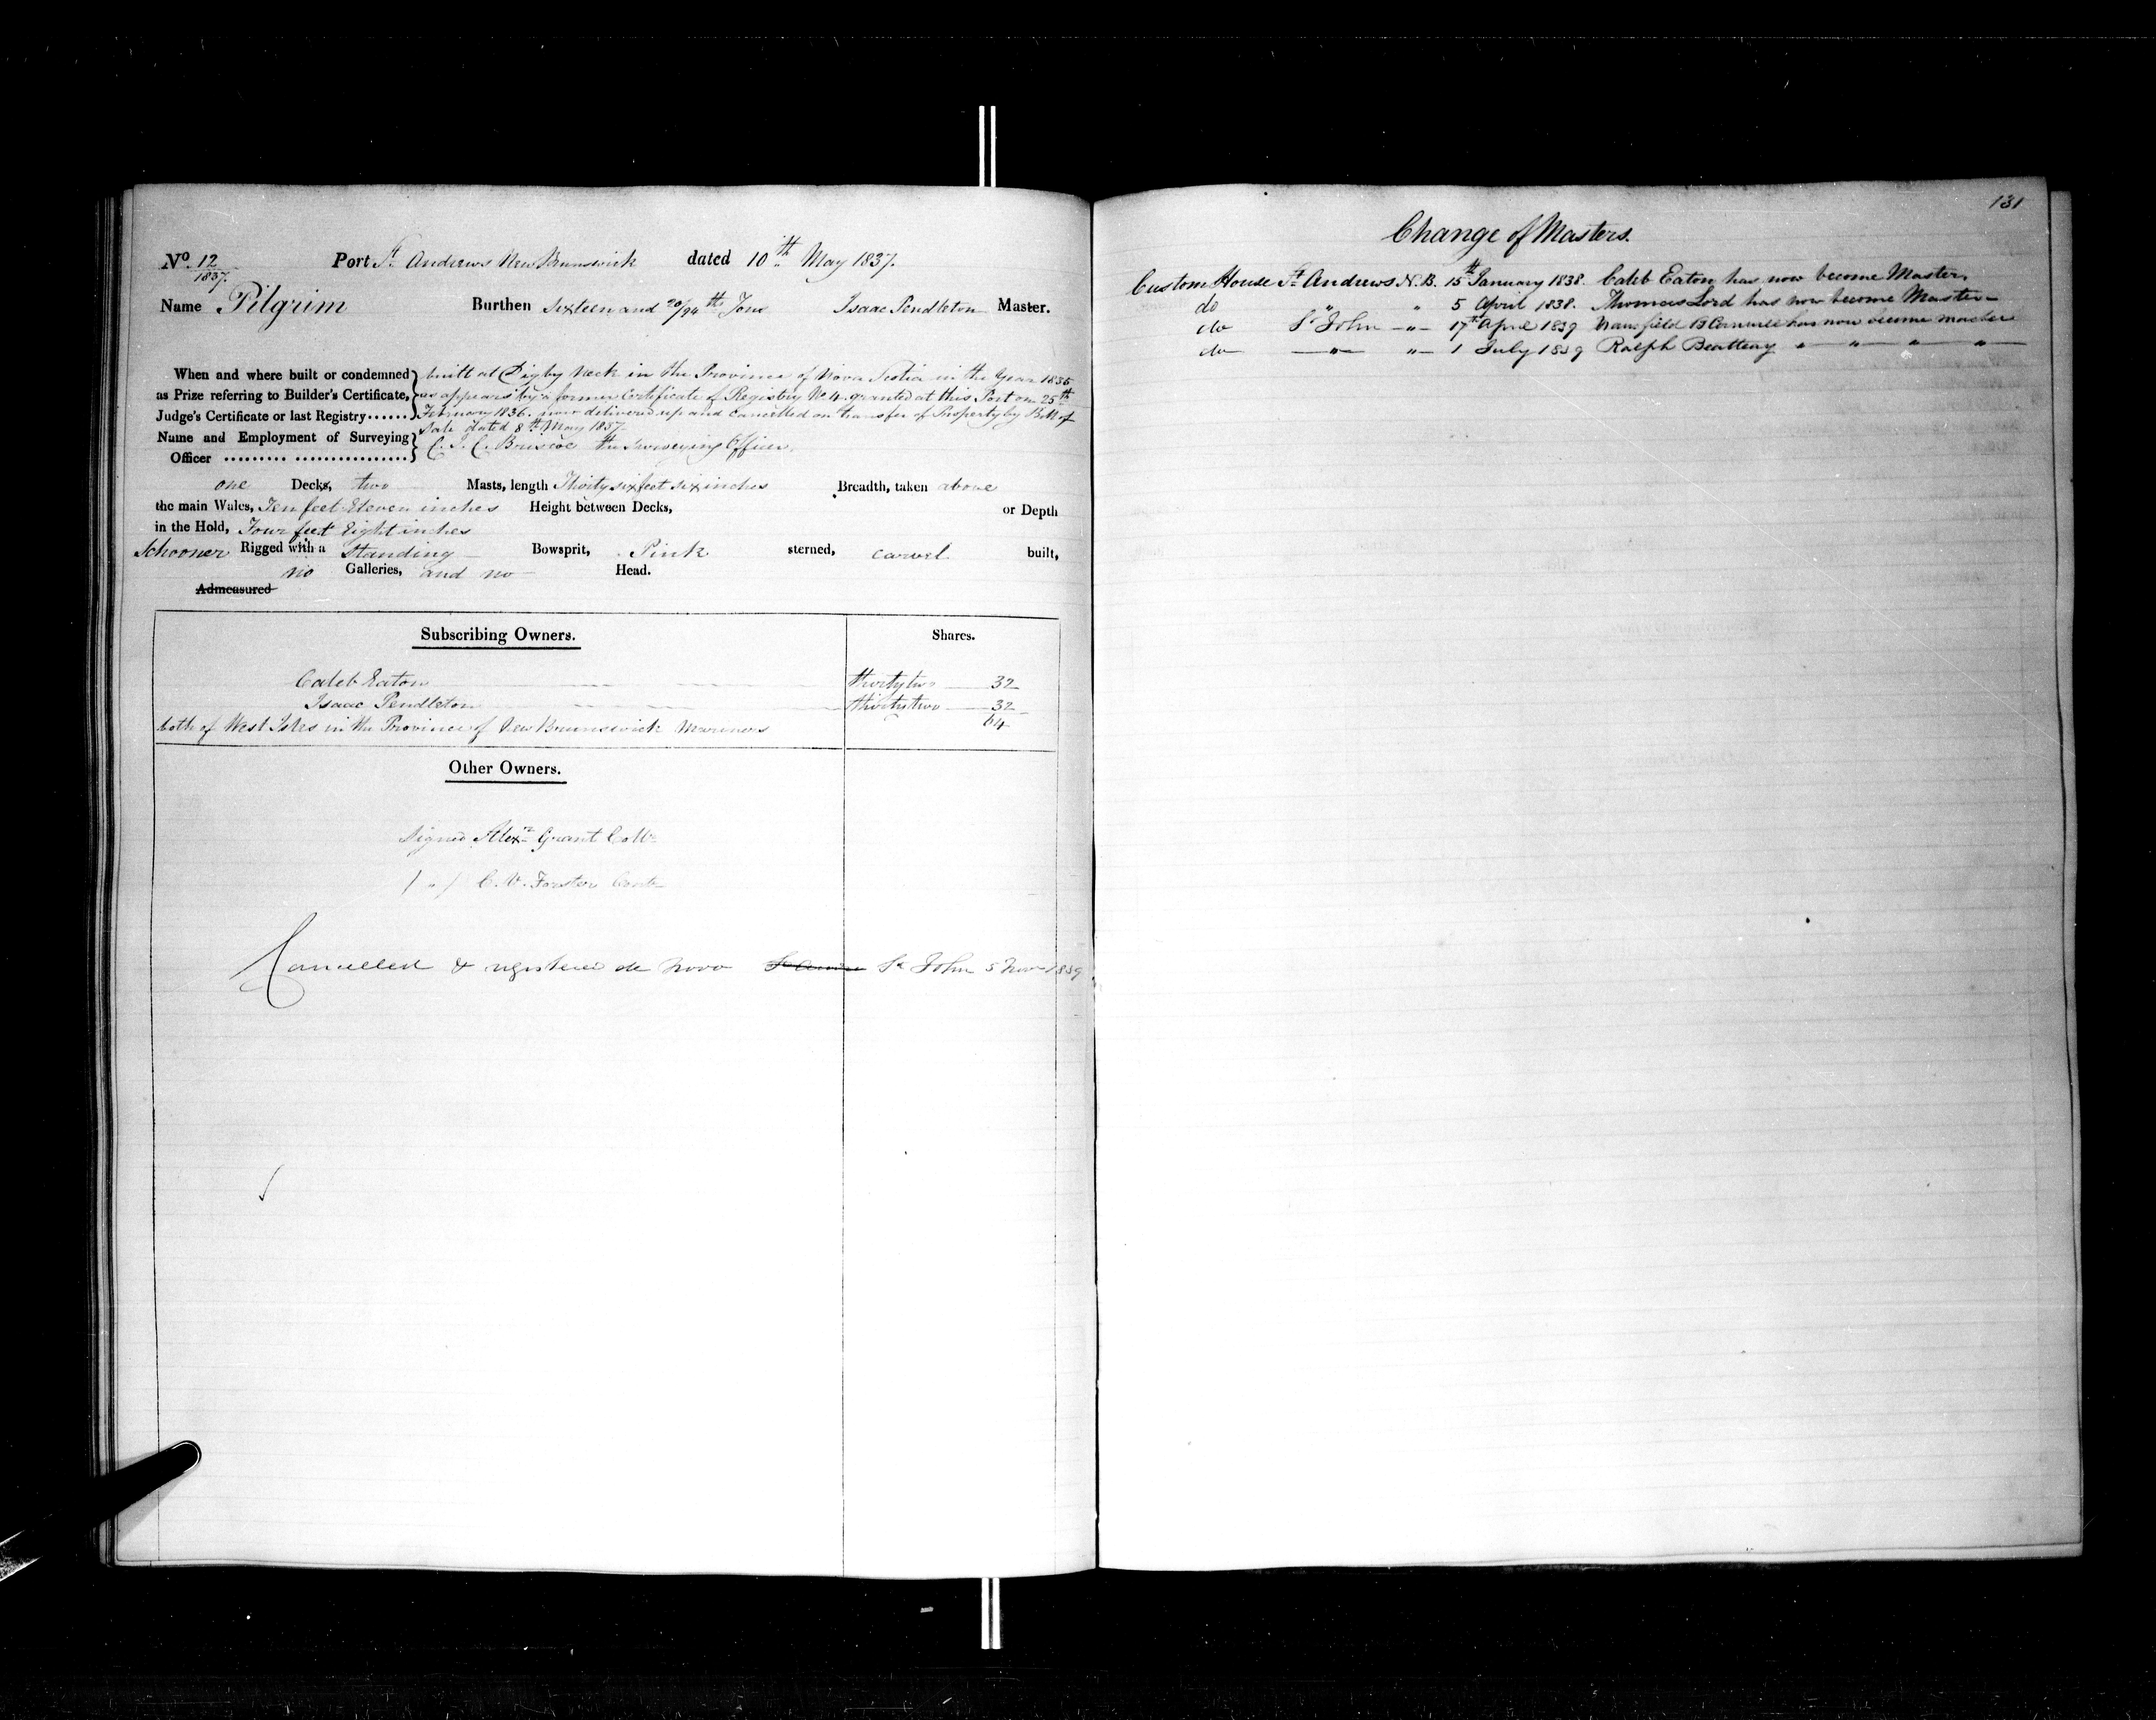 No. 12
1837.
Port St. Andrews New Brunswick dated 10th May 1837.
Name Pilgrim Burthen Sixteen and 20/94th Tons Isaac Pendleton Master.
When and where built or condemned as Prize referring to Builder's Certificate, Judge's Certificate or last Registry......
built at Digby Neck in the Province of Nova Scotia in the Year 1835
as appears by a former Certificate of Registry No 4 granted at this Port on 25th
February 1836. now delivered up and cancelled on transfer of Property by Bill of
Sale dated 8th May 1837.
Name and Employment of Surveying Officer
C. J. C. Briscoe the Surveying Officer.
one Decks, two Masts, length Thirty six feet six inches Breadth, taken above
the main Wales, Ten feet Eleven inches Height between Decks, or Depth
in the Hold, Four feet Eight inches
Schooner Rigged with a Standing Bowsprit, Pink sterned, carvel built,
no Galleries, and no Head.
Admeasured
Subscribing Owners. Shares.
Caleb Eaton thirty two 32
Isaac Pendleton thirty two 32
both of West Isles in the Province of New Brunswick Mariners 64
Other Owners.
Signed Alexr Grant Collr
( " ) C. V. Forster Contr
Cancelled & registered de Novo St Andrews St John 5 Novr 1839
131
Change of Masters.
Custom House St Andrews N. B. 15th January 1838. Caleb Eaton has now become Master.
do " " 5 April 1838. Thomas Lord has now become Master
do St John " 17th April 1839 has now become master
do " " 1 July 1839 Ralph Beatteay " " " "